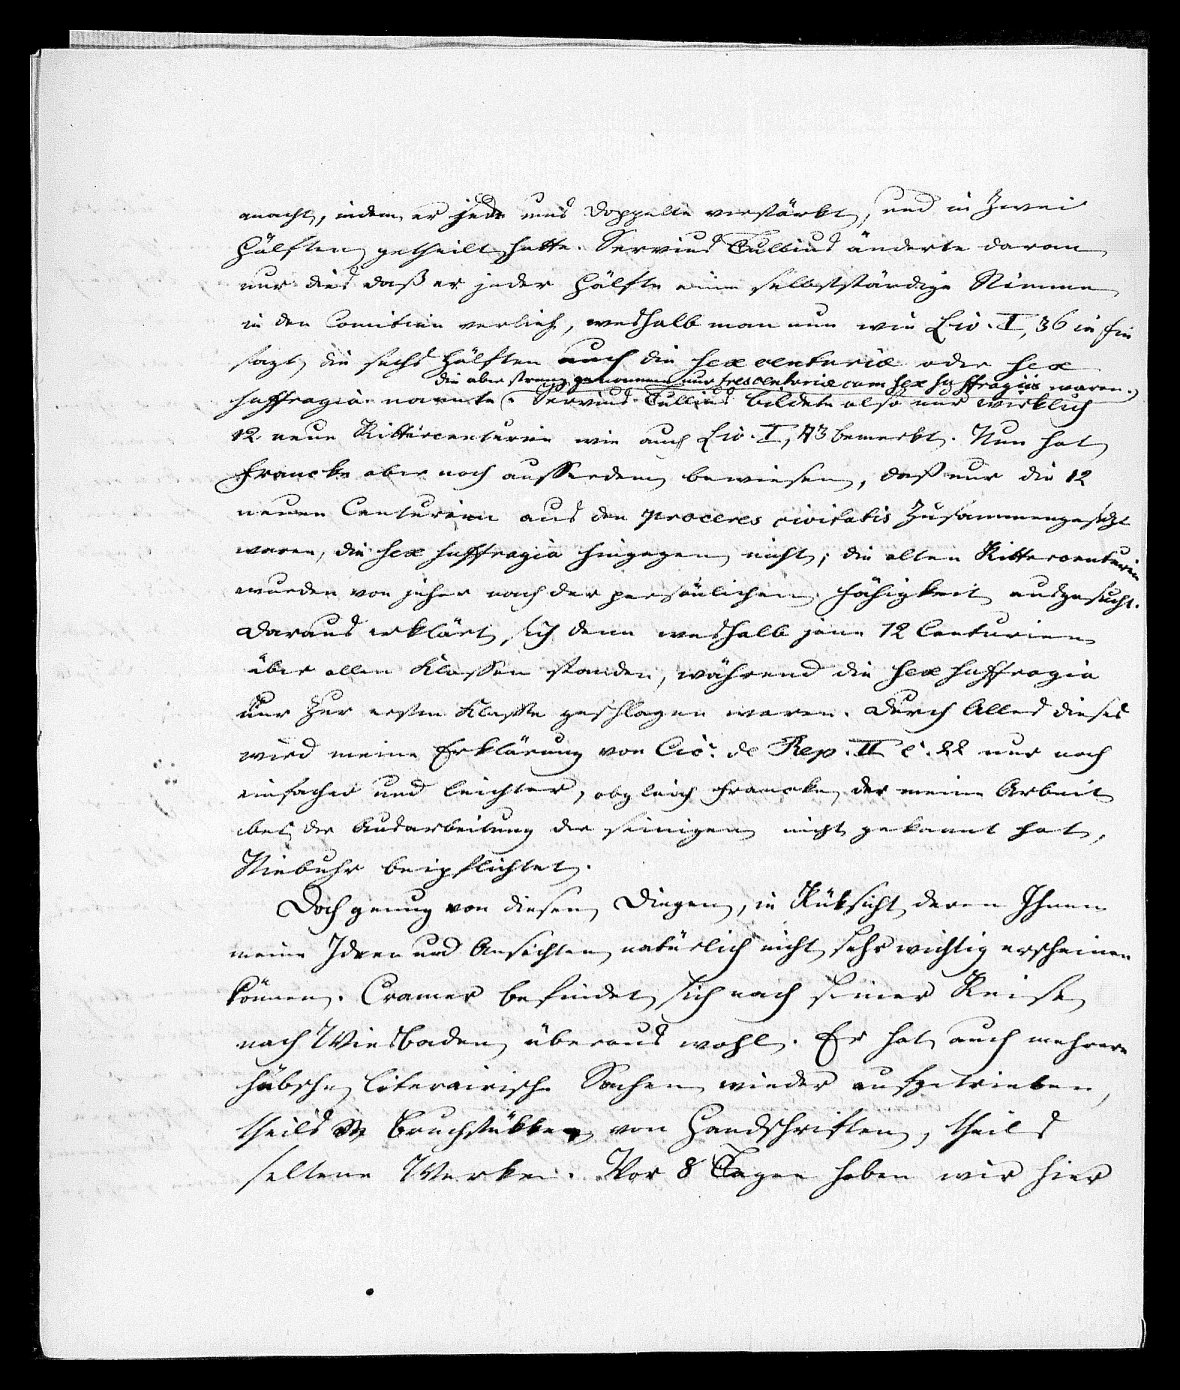 macht, indem er jede ums Doppelte verstärkt, und in zwei
Hälften getheilt hatte. Servius Tullius änderte daran
nur dies daß er jeder Hälfte eine selbstständige Stimme
in den Comitien verlieh, weshalb man nun wie Liv. I, 36 in fin
sagt, die sechs Hälften auch die sex centuriae oder sex
die aber streng genommen nur tres centuriae cum sex suffragiis waren.)
suffragia nannte (. Servius Tullius bildete also nur wirklich
12 neue Rittercenturien wie auch Liv. I, 43 bemerkt. Nun hat
Francke aber noch ausserdem bewiesen, daß nur die 12
neuen Centurien aus den proceres civitatis zusammengesetzt
waren, die sex suffragia hingegen nicht; die alten Rittercenturien
wurden von jeher nach der persönlichen Fähigkeit ausgesucht.
Daraus erklärt sich denn weshalb jene 12 Centurien
über allen Klassen standen, während die sex suffragia
nur zur ersten Klasse geschlagen waren. Durch Alles dieses
wird meine Erklärung von Cic. de Rep. II c. 22 nur noch
einfacher und leichter, obgleich Francke, der meine Arbeit
bei der Ausarbeitung der seinigen nicht gekannt hat,
Niebuhr beipflichtet.
Doch genug von diesen Dingen, in Rüksicht deren Ihnen
meine Ideen und Ansichten natürlich nicht sehr wichtig erscheinen
können. Cramer befindet sich nach seiner Reise
nach Wiesbaden überaus wohl. Er hat auch mehrere
hübsche literairische Sachen wieder aufgetrieben,
theils Bruchstükke von Handschriften, theils
seltene Werke. Vor 8 Tagen haben wir hier